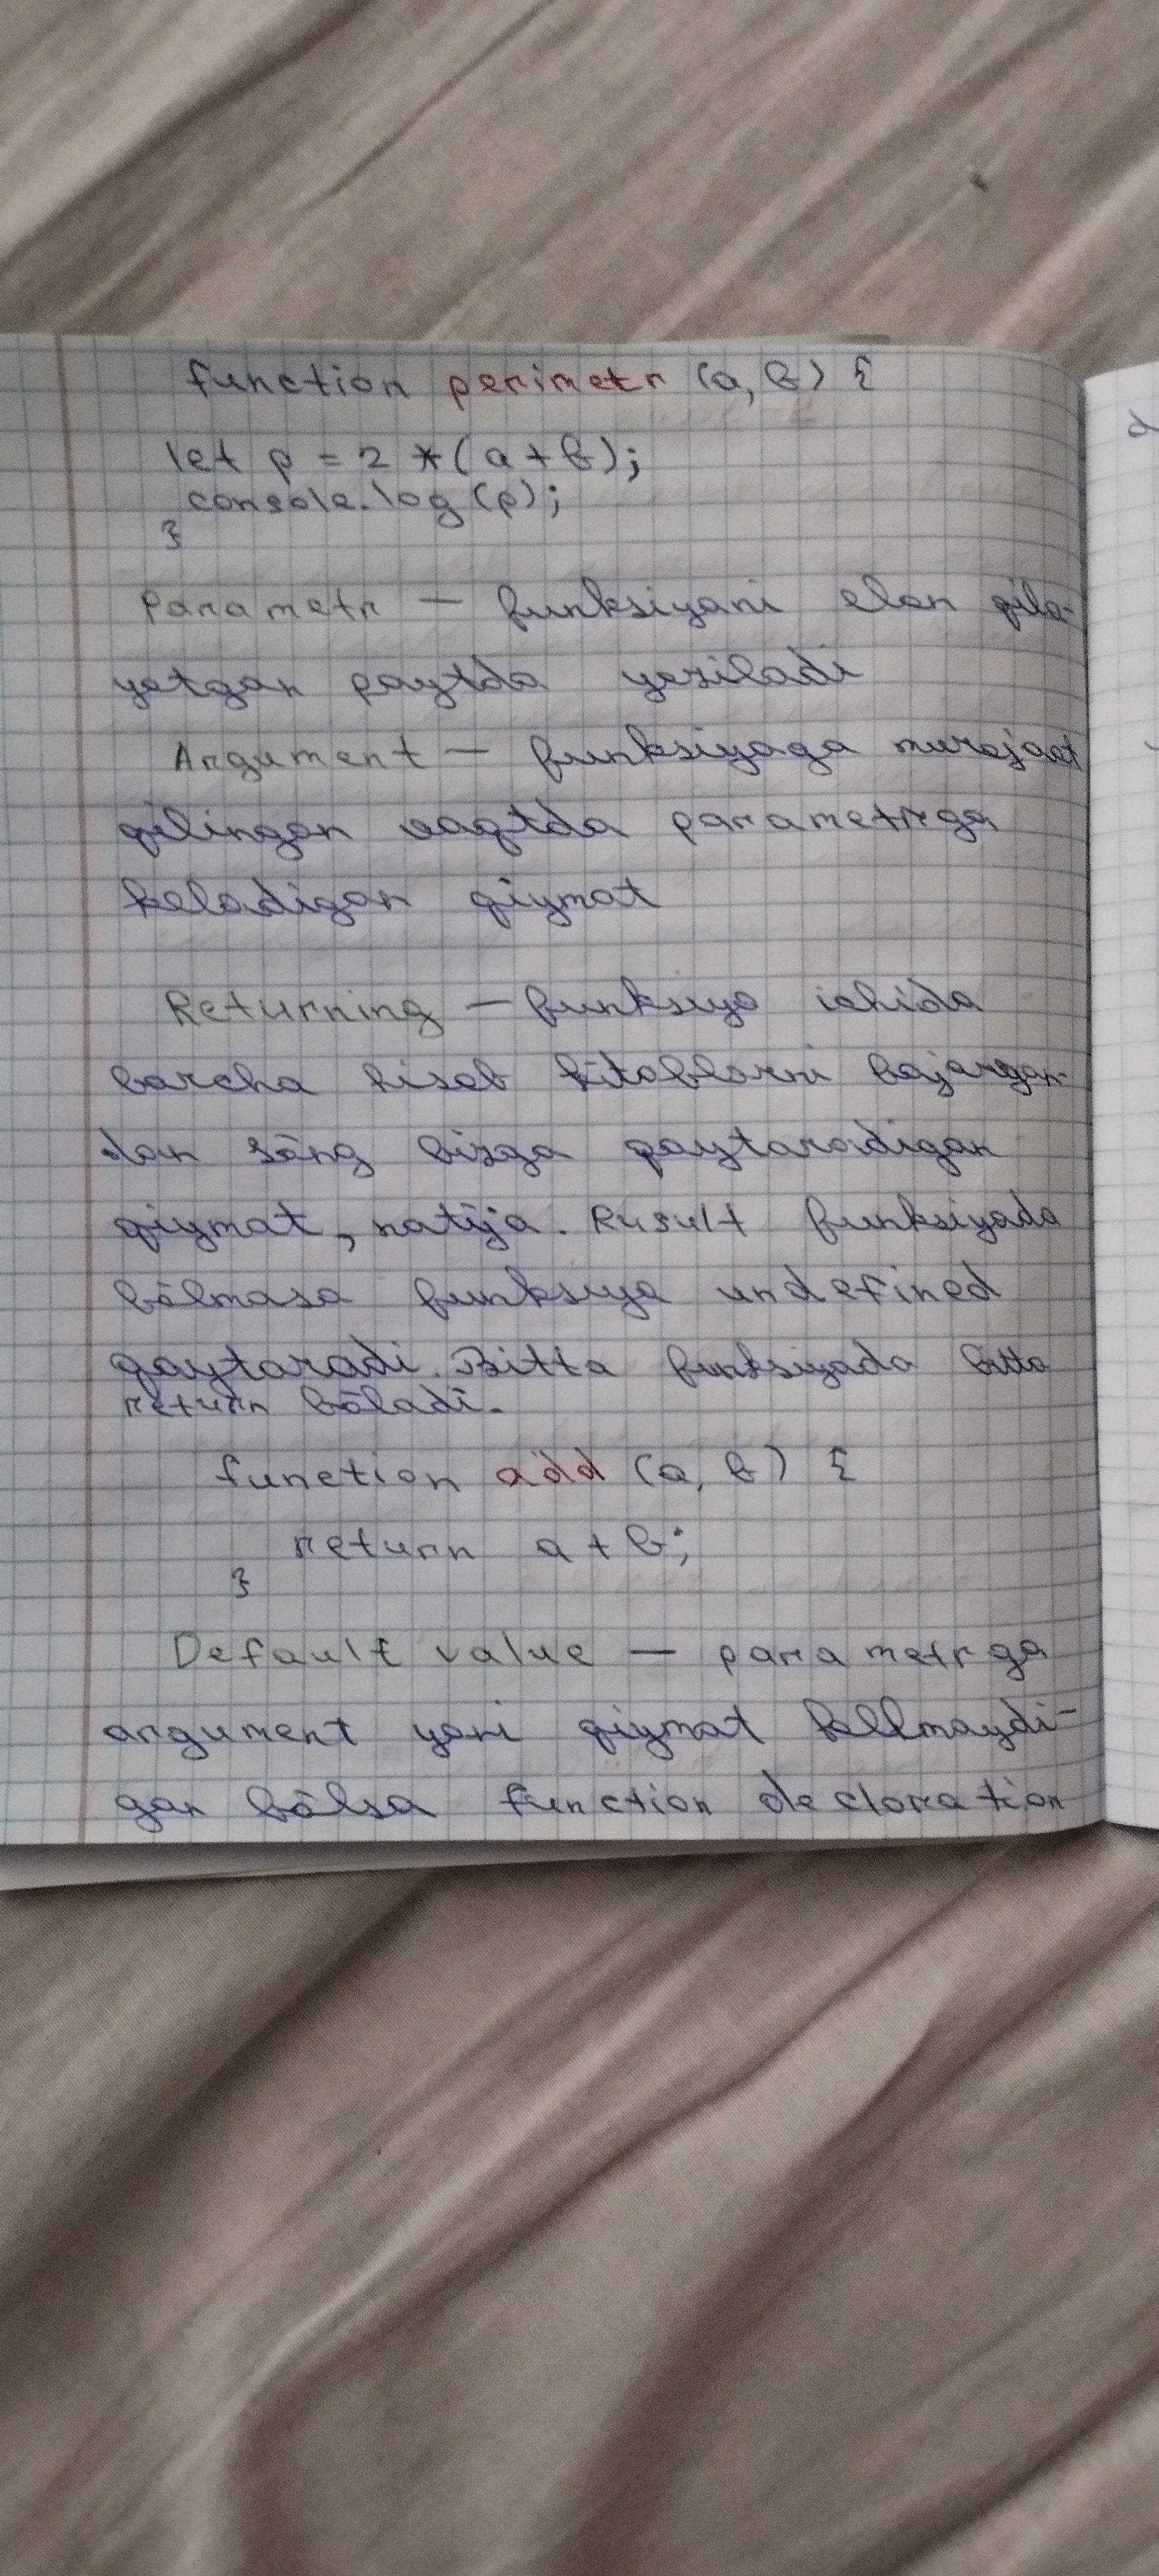 function perimetr (a, b) {
let p = 2 * (a + b);
console.log (p);
}
Parametr — funksiyani elon qila-
yotgan paytda yoziladi
Argument — funksiyaga murojaat
qilingan vaqtda parametrga
keladigan qiymat
Returning — funksiya ichida
barcha hisob kitoblarni bajargan-
dan sōng bizga qaytaradigan
qiymat, natija. Rusult funksiyada
bōlmasa funksiya undefined
qaytaradi. Bitta funksiyada bitta
return bōladi.
function add (a, b) {
return a + b;
}
Default value — parametrga
argument yani qiymat kelmaydi-
gan bōlsa function declaration